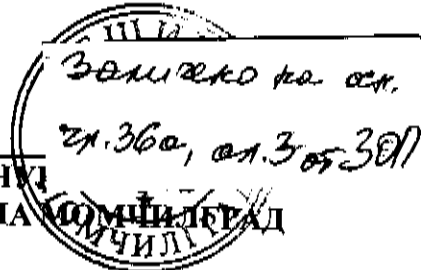 Заличено на осн.
чл.36а, ал.3 от ЗОП
НА МОМЧИЛГРАД